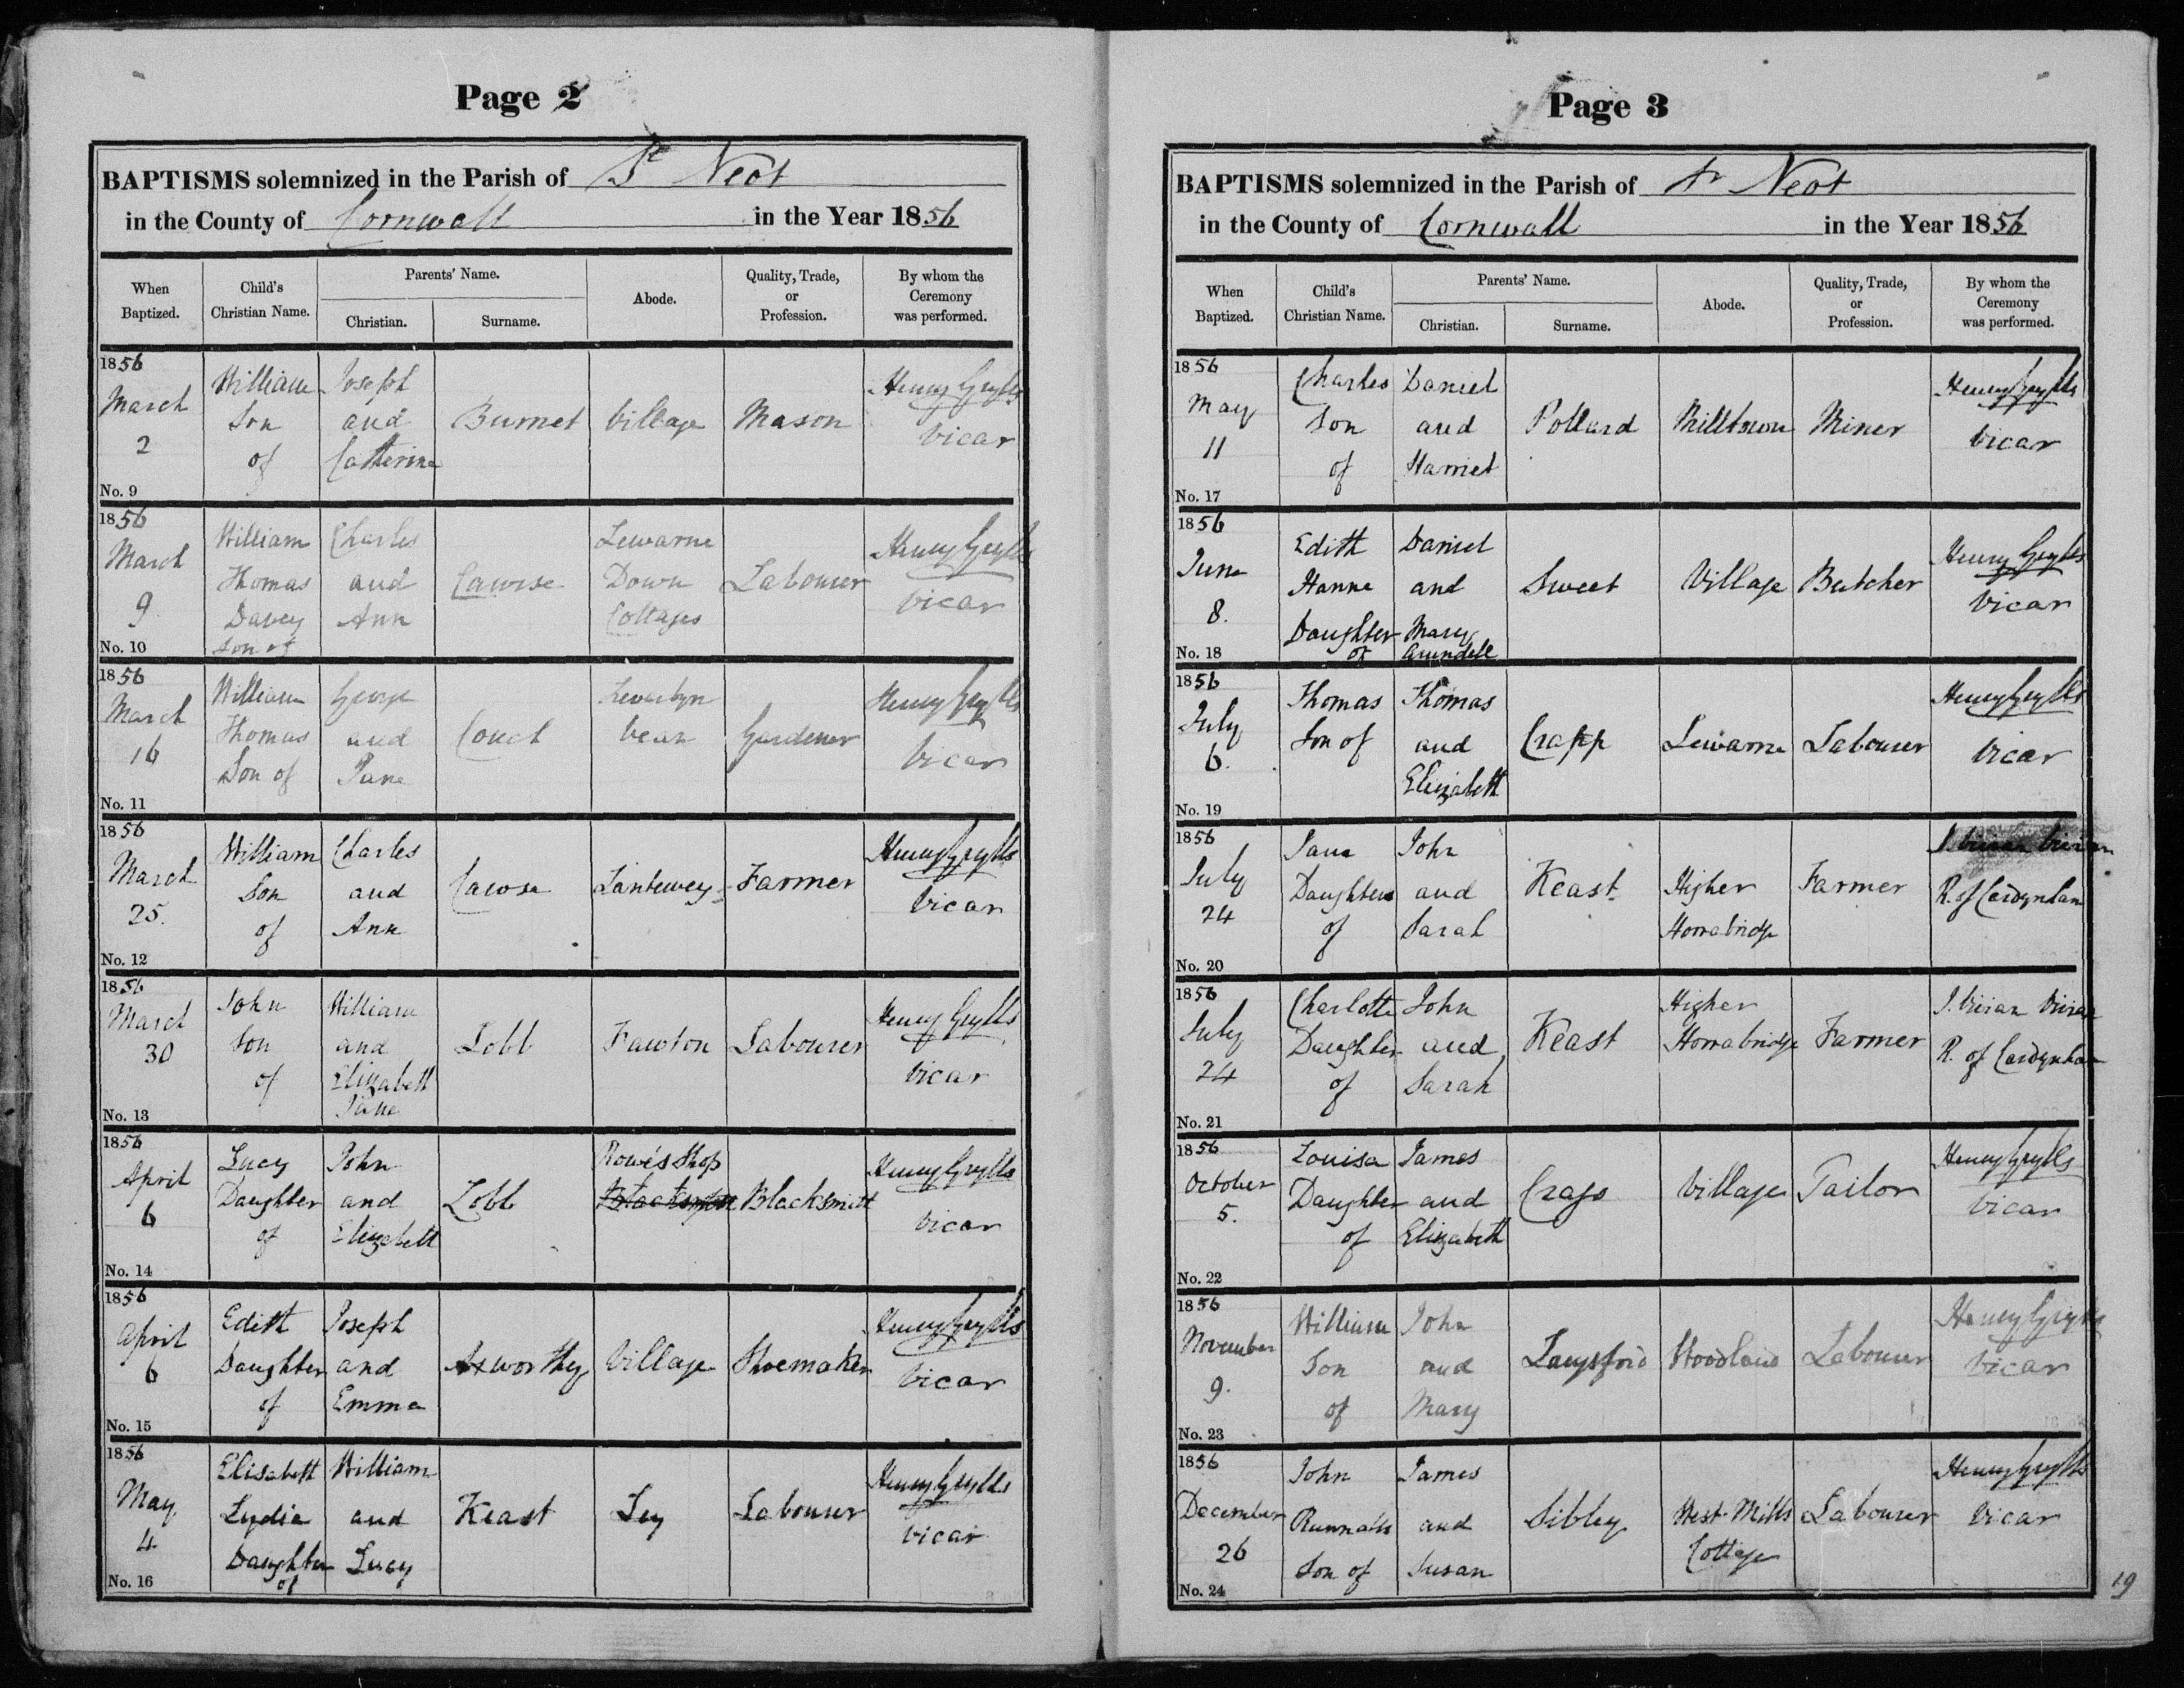 Page 2
BAPTISMS solemnized in the Parish of St Neot
in the County of Cornwall in the Year 1856
When Baptized. Child's Christian Name. Parents' Name. Christian. Surname. Abode. Quality, Trade, or Profession. By whom the Ceremony was performed.
1856
March William Joseph Henry Grylls
2 Son and Burnet Village Mason Vicar
of Catherine
No. 9
1856
March William Charles Lewarne Henry Grylls
9 Thomas and Cawse Down Labourer Vicar
Davey Ann Cottages
No. 10 Son of
1856
March William George Henry Grylls
16 Thomas and Couch vean Gardener Vicar
Son of Jane
No. 11
1856
March William Charles Henry Grylls
25. Son and Cawse Lantewey Farmer Vicar
of Ann
No. 12
1856
March John William Henry Grylls
30 Son and Lobb Fawton Labourer Vicar
of Elizabeth
No. 13 Jane
1856
April Lucy John Rowe's Shop Henry Grylls
6 Daughter and Lobb Blacksmith Vicar
of Elizabeth
No. 14
1856
April Edith Joseph Henry Grylls
6 Daughter and Axworthy Village Shoemaker Vicar
of Emma
No. 15
1856
May Elisabeth William Henry Grylls
4 Lydia and Keast Ley Labourer Vicar
Daughter Lucy
No. 16 of
Page 3
BAPTISMS solemnized in the Parish of St Neot
in the County of Cornwall in the Year 1856
When Baptized. Child's Christian Name. Parents' Name. Christian. Surname. Abode. Quality, Trade, or Profession. By whom the Ceremony was performed.
1856
May Charles Daniel Henry Grylls
11 Son and Pollard Milltown Miner Vicar
of Harriet
No. 17
1856
June Edith Daniel Henry Grylls
8. Hanna and Sweet Village Butcher Vicar
Daughter Mary
No. 18 of Arundell
1856
July Thomas Thomas Henry Grylls
6. Son of and Crapp Lewarne Labourer Vicar
Elizabeth
No. 19
1856
July Jane John J. Vivian Vivian
24 Daughter and Keast Higher Farmer R. of Cardynham
of Sarah Horrabridge
No. 20
1856
July Charlotte John Higher J. Vivian Vivian
24 Daughter and Keast Horrabridge Farmer R. of Cardynham
of Sarah
No. 21
1856
October Louisa James Henry Grylls
5. Daughter and Village Tailor Vicar
of Elizabeth
No. 22
1856
November William John Henry Grylls
9. Son and Langsford Woodland Labourer Vicar
of Mary
No. 23
1856
December John James Henry Grylls
26 Runnalls and Sibley West Mills Labourer Vicar
Son of Susan Cottage
No. 24
19